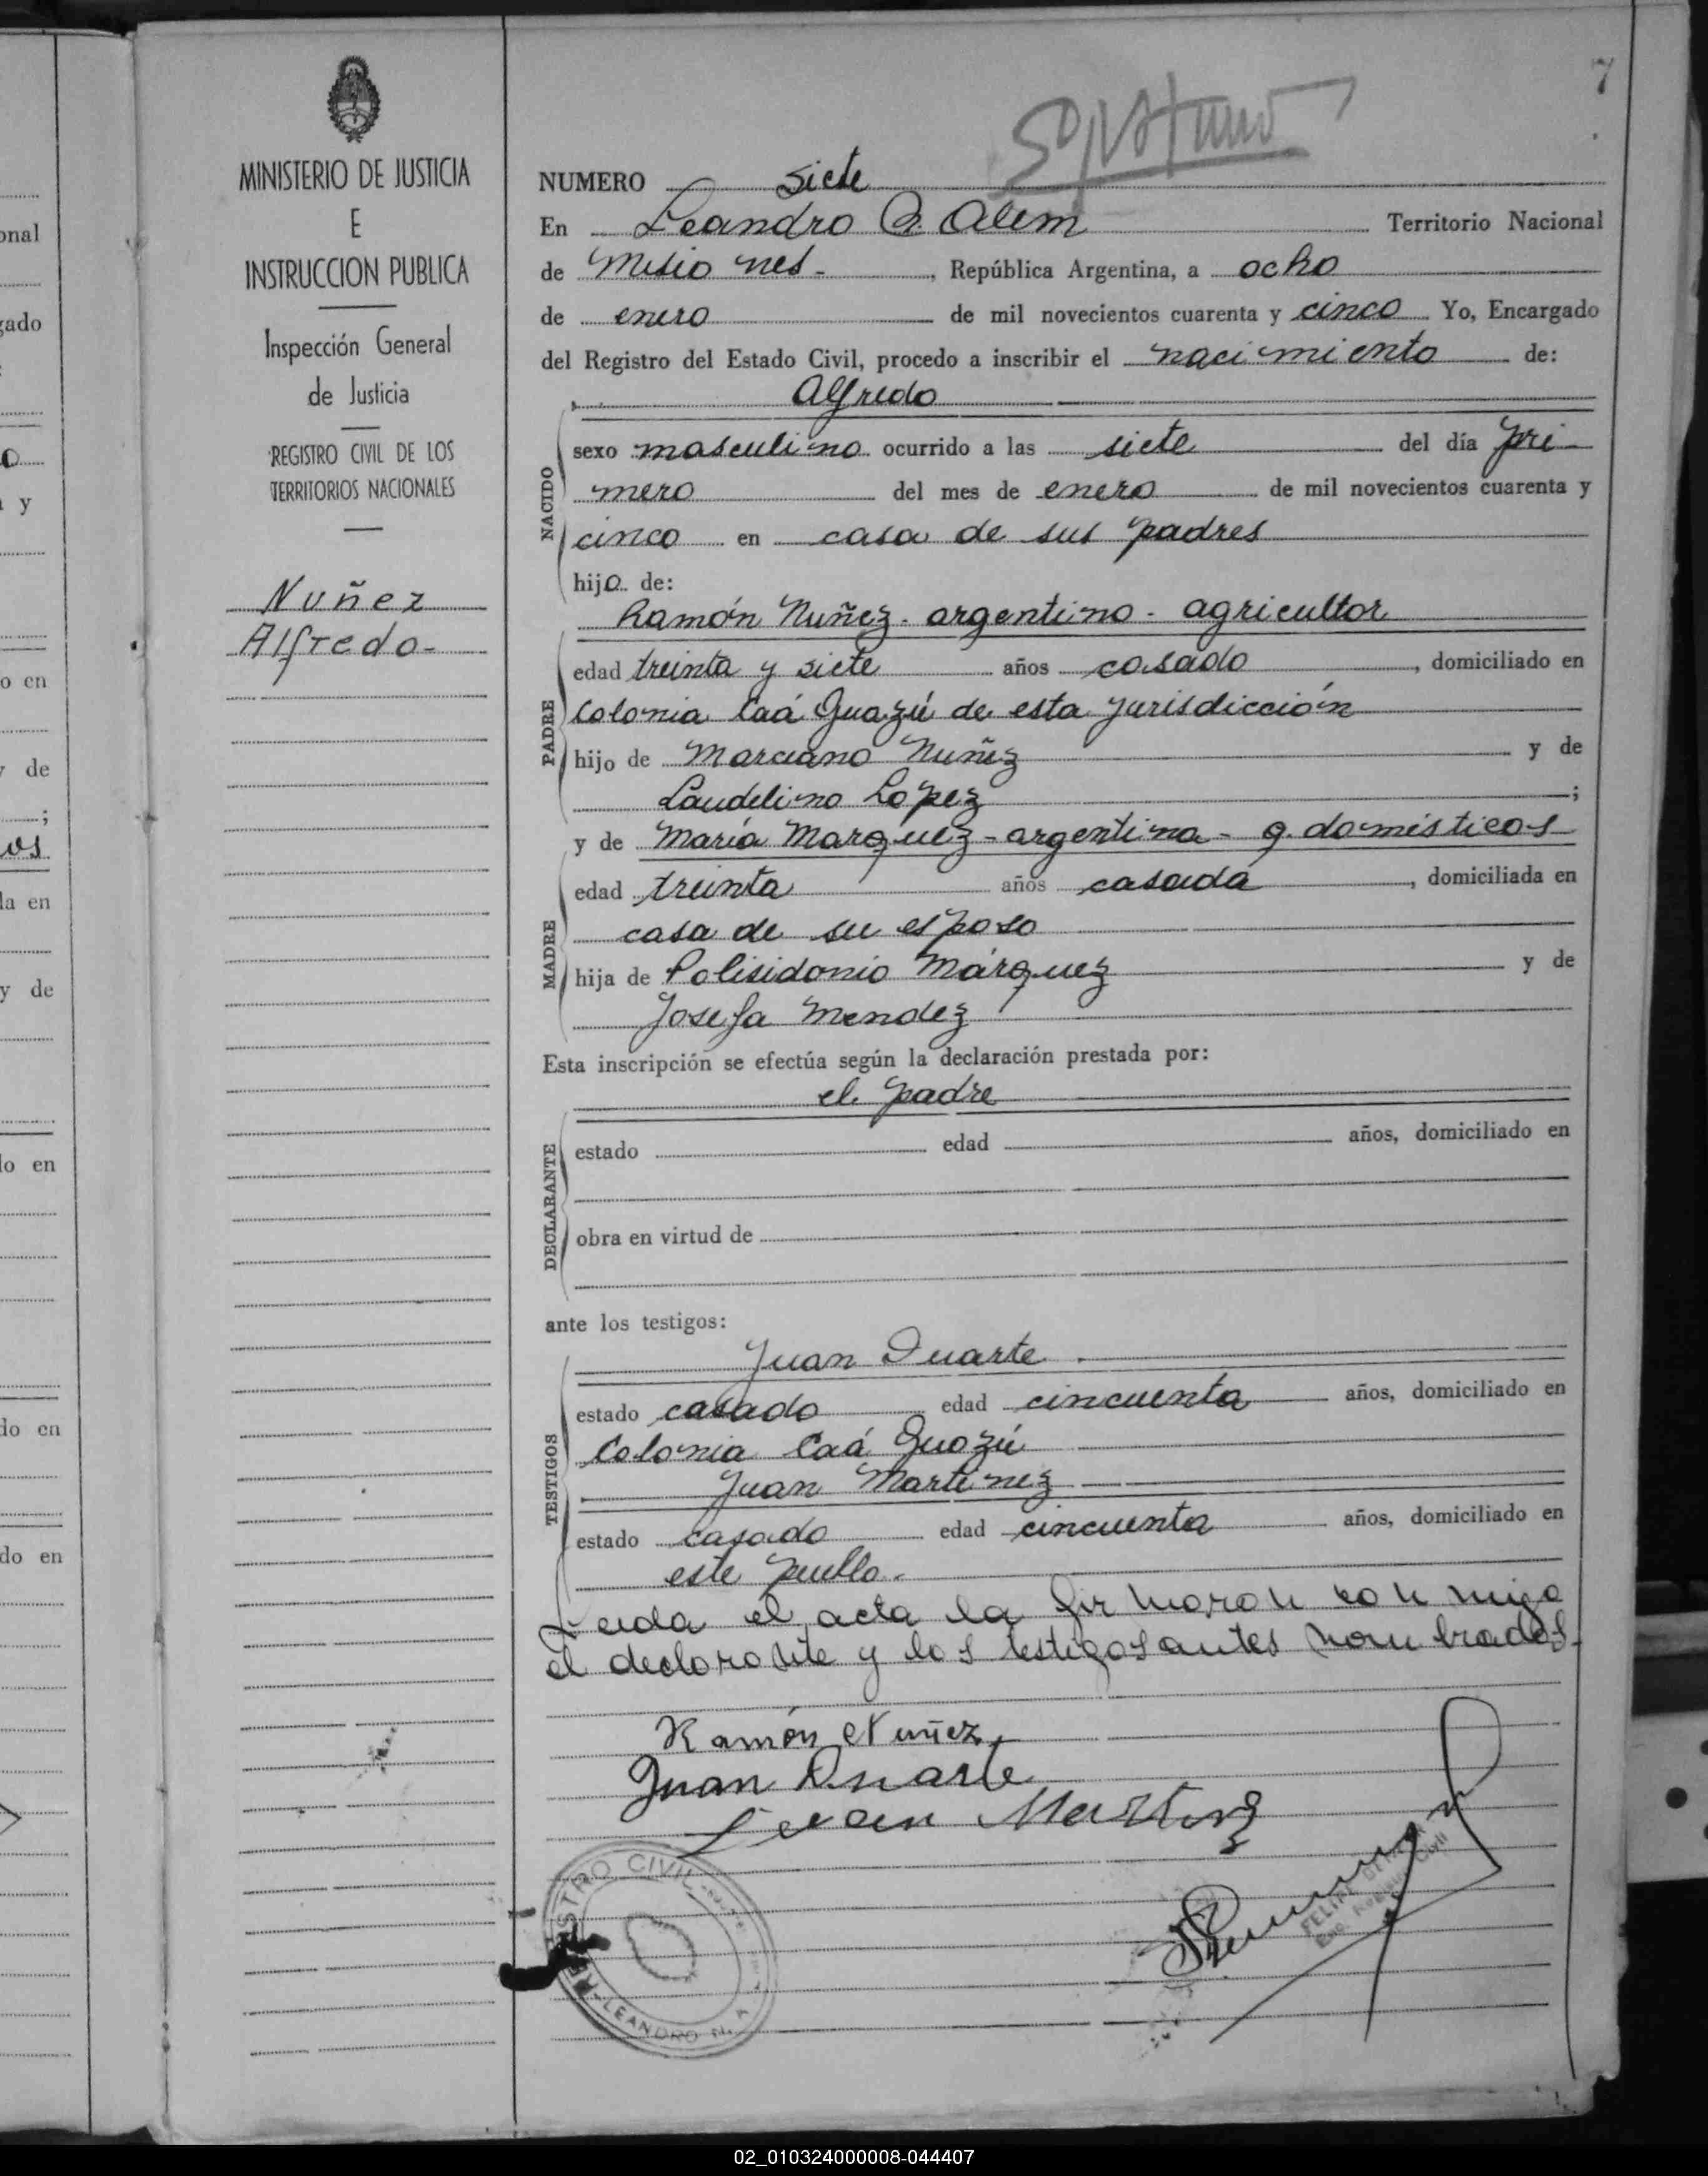 7
MINISTERIO DE JUSTICIA
E
INSTRUCCION PUBLICA
Inspección General
de Justicia
REGISTRO CIVIL DE LOS
TERRITORIOS NACIONALES
Nuñez
Alfredo-
NUMERO siete
En Leandro N. Alem Territorio Nacional
de Misiones-, República Argentina, a ocho
de enero de mil novecientos cuarenta y cinco Yo, Encargado
del Registro del Estado Civil, procedo a inscribir el nacimiento de:
Alfredo
NACIDO
sexo masculino ocurrido a las siete del día pri-
mero del mes de enero de mil novecientos cuarenta y
cinco en casa de sus padres
hijo de:
PADRE
Ramón Nuñez - argentino - agricultor
edad treinta y siete años casado, domiciliado en
Colonia Caá Guazú de esta jurisdicción
hijo de Marciano Nuñez y de
Laudelino López;
MADRE
y de María Marquez - argentina - q. domésticos
edad treinta años casada, domiciliada en
casa de su esposo
hija de Polisidonio Márquez y de
Josefa Mendez
Esta inscripción se efectúa según la declaración prestada por:
el padre
DECLARANTE
estado edad años, domiciliado en
obra en virtud de
ante los testigos:
TESTIGOS
Juan Duarte.
estado casado edad cincuenta años, domiciliado en
Colonia Caá Guazú
Juan Martinez
estado casado edad cincuenta años, domiciliado en
este pueblo.
Leida el acta la firmaron conmigo
el declarante y los testigos antes nombrados.
Ramón Nuñez
Juan Duarte
Juan Martinez
REGISTRO CIVIL
LEANDRO N. A
FELIPE
Enc. Registro Civil
02_010324000008-044407